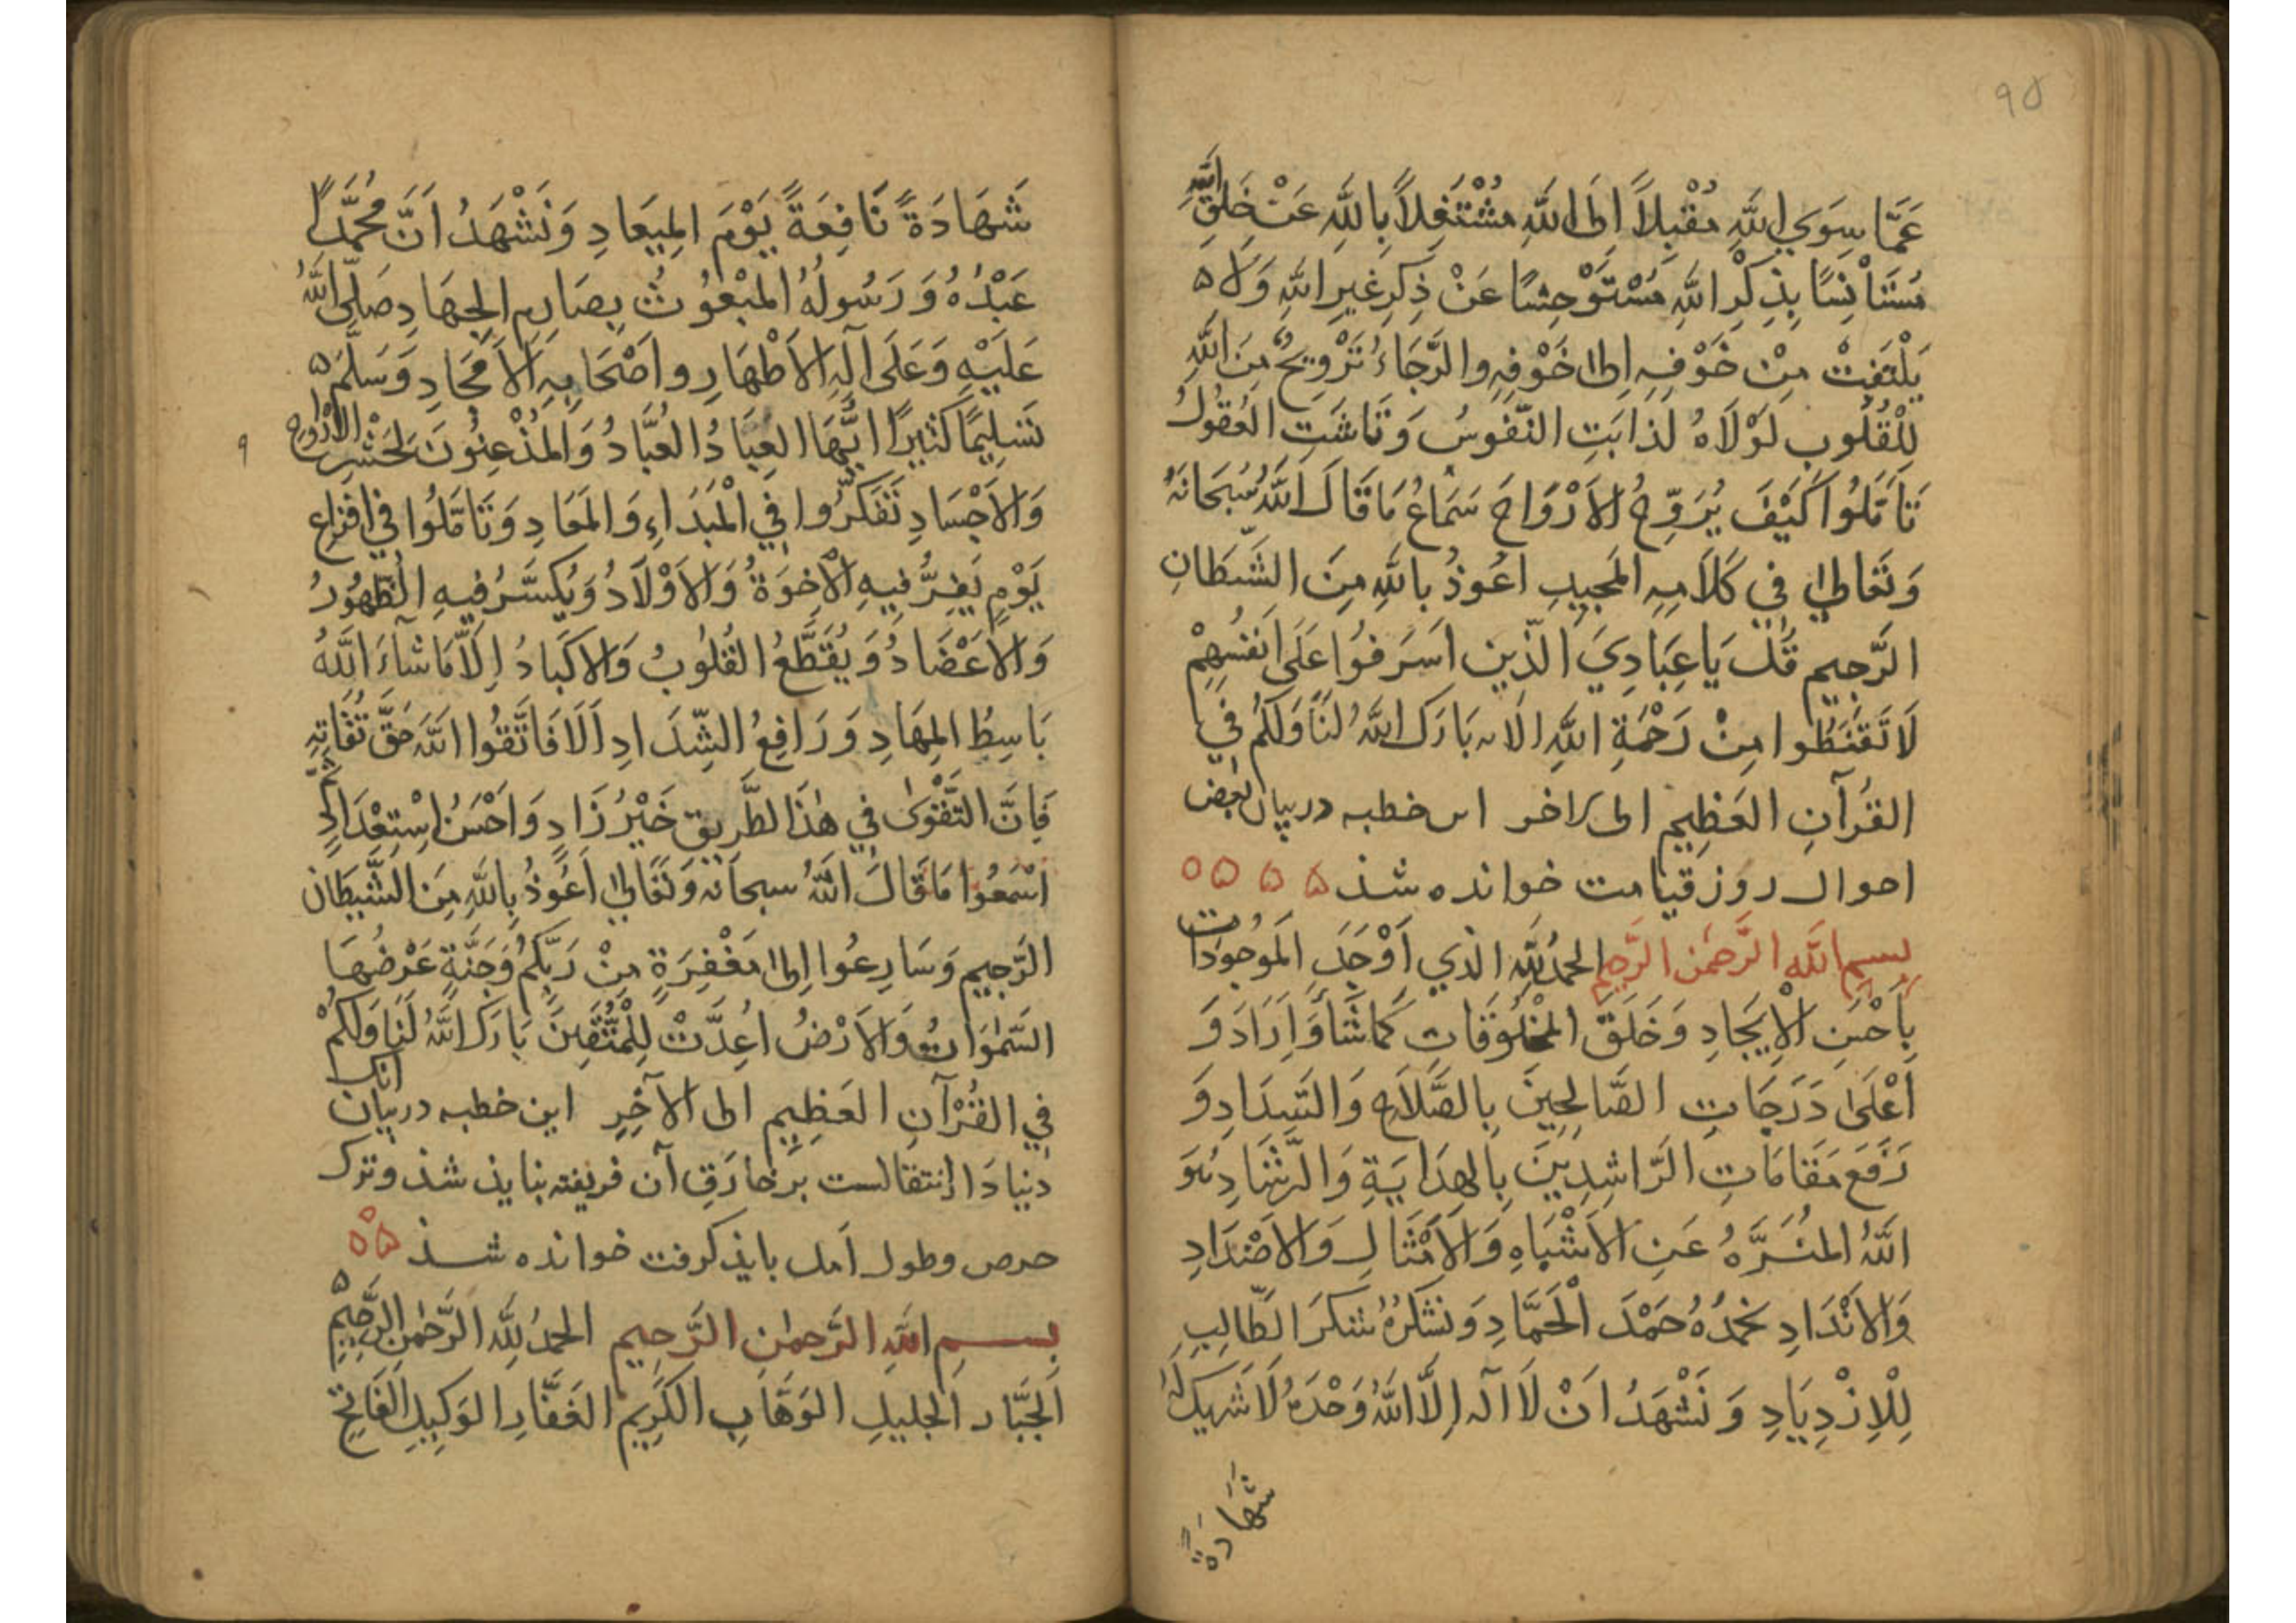 ۹۵
عَمَّا سِوَي اللَّهِ مُقْبِلاً اِلَى اللَّهِ مُشْتَغِلاً بِاللَّهِ عَنْ خَلِقِ اللَّهِ
مُسْتَأْنِسًا بِذِكْرِ اللَّهِ مُسْتَوْحِشًا عَنْ ذِكِرِ غيرِ اللَّهِ وَلَا ه
يَلْتَفِتْ مِنْ خَوْفِهِ اِلىٰ خَوْفِهِ والرَّجَاءُ تَرْوِيحٌ مِنَ اللَّهِ
لِلْقُلُوبِ لَوْلَاهُ لَذَابَتِ النّفوسُ وَتَاشَتِ العُقُولُ
تَأَمَّلُوا كَيْفَ يُرَوِّحُ الاَرْوَاحَ سَمَاعُ مَا قَالَ اللَّهُ سُبْحَانَهُ
وَتَعَالىٰ في كَلَامِهِ المَجِيدِ اعُوذُ باللَّهِ مِنَ الشَّيطَانِ
الرَّجيمِ قُل يَا عِبَادِيَ الَّذِينَ اَسَرَفُوا عَلَى اَنفُسِهِمْ
لَا تَقْنَطُوا مِنْ رَحْمَةِ اللَّهِ الايه بَارَكَ اللَّهُ لنَا وَلَكُم فِي
القُرآنِ العَظِيمِ الى الاخر اىں خطبه در بيان بعض
احوال روز قيامت خوانده شذ ه ه ه ه
بسم اللَّه الرَّحْمٰن الرَّحِيم الحمدُ للَّهِ الذي اَوْجَدَ المَوجُودَات
بِاَحْسَنِ الاِيجَادِ وَخَلَقَ المخلُوقَاتِ كَمَا شَاءَ وَاَرَادَ وَ
اَعْلَىٰ دَرَجَاتِ الصَّالِحِينَ بِالصَّلَاحِ وَالسَّدَادِ وَ
رَفَعَ مَقَامَاتِ الرَّاشِدِينَ بِالهِدَايَةِ وَالرَّشَادِ هُوَ
اللَّهُ المُنَزَّهُ عَنِ الاَشْبَاهِ وَالاَمْثَالِ وَالاَضْدَادِ
وَالاَنْدَادِ نَحْمَدُهُ حَمْدَ الْحَمَّادِ وَنَشْكُرُهُ شُكرَ الطَّالِبِ
لِلْاِزْدِيَادِ وَنَشْهَدُ انْ لَا آله اِلَّا اللَّهُ وَحْدَهُ لَا شَرِيكَ لَهُ
شَهَادَةً
شَهَادَةً نَافِعَةً يَوْمَ المِيَعَادِ وَنَشْهَدُ اَنَّ مُحَمَّدًا
عَبْدُهُ وَرَسُولُهُ المَبْعُوثُ بِصَارِمِ الجِهَادِ صَلَّى اللَّهُ
عَلَيْهِ وَعَلَى آلِهِ الاَطْهَارِ واصْحَابِهِ الاَمْجَادِ وَسَلَّمَ ه
تَسْلِيمًا كَثِيرًا اَيُّهَا العِبَادُ العُبَّادُ وَالمُذْعِنُونَ لِحَشْرِ الاَرْوَاحِ
وَالاَجْسَادِ تَفَكَّرُوا فِي الْمَبْدَاءِ وَالمَعَادِ وَتَامَّلُوا في افزَاعِ
يَوْمٍ يَفِرُّ فِيهِ الاْخِوَةُ وَالاَوْلَادُ وَيُكسَّرُ فيهِ الظُّهُورُ
وَالاَعْضَادُ وَيُقَطَّعُ القُلُوبُ وَالاكبَادُ اِلَّا مَا شآءَ اللَّهُ
بَاسِطُ المِهَادِ وَرَافِعُ الشِّدَادِ اَلَا فَاتَّقُوا اللَّهَ حَقَّ تُقَاتِهِ
فَاِنَّ التَّقْوٰى في هٰذَا الطَّرِيقِ خَيْرُ زَادٍ وَاَحْسَنُ اِسْتِعْدَادٍ
اسْمَعُوا مَا قَالَ اللَّهُ سبحانه وَتَعَالىٰ اَعُوذُ بِاللَّهِ مِنَ الشَّيطَانِ
الرَّجِيمِ وَسَارِعُوا اِلىٰ مَغْفِرَةٍ مِنْ رَبِّكُمْ وَجَنَّةٍ عَرْضُهَا
السَّمٰوَاتُ وَالاَرْضُ اُعِدَّتْ لِلْمُتَّقِينَ بَارَكَ اللَّهُ لَنَا وَلَكُمْ
فِي القُرْآنِ العَظِيمِ الى الآخِرِ اين خطبه در بيان آنك
دنيا دار انتقالست بزخارفِ آن فريفته نبايذ شذ وترك
حرص وطول اَمل بايذ كرفت خوانده شذ ه ه ه
بسمِ اللَّهِ الرَّحمٰنِ الرَّحِيمِ الحمدُ للَّهِ الرَّحْمٰنِ الرَّحِيمِ ه
الجَبَّارِ الجَلِيلِ الوَهَّابِ الكَرِيمِ الغَفَّارِ الوَكِيلِ الفَاتِحِ